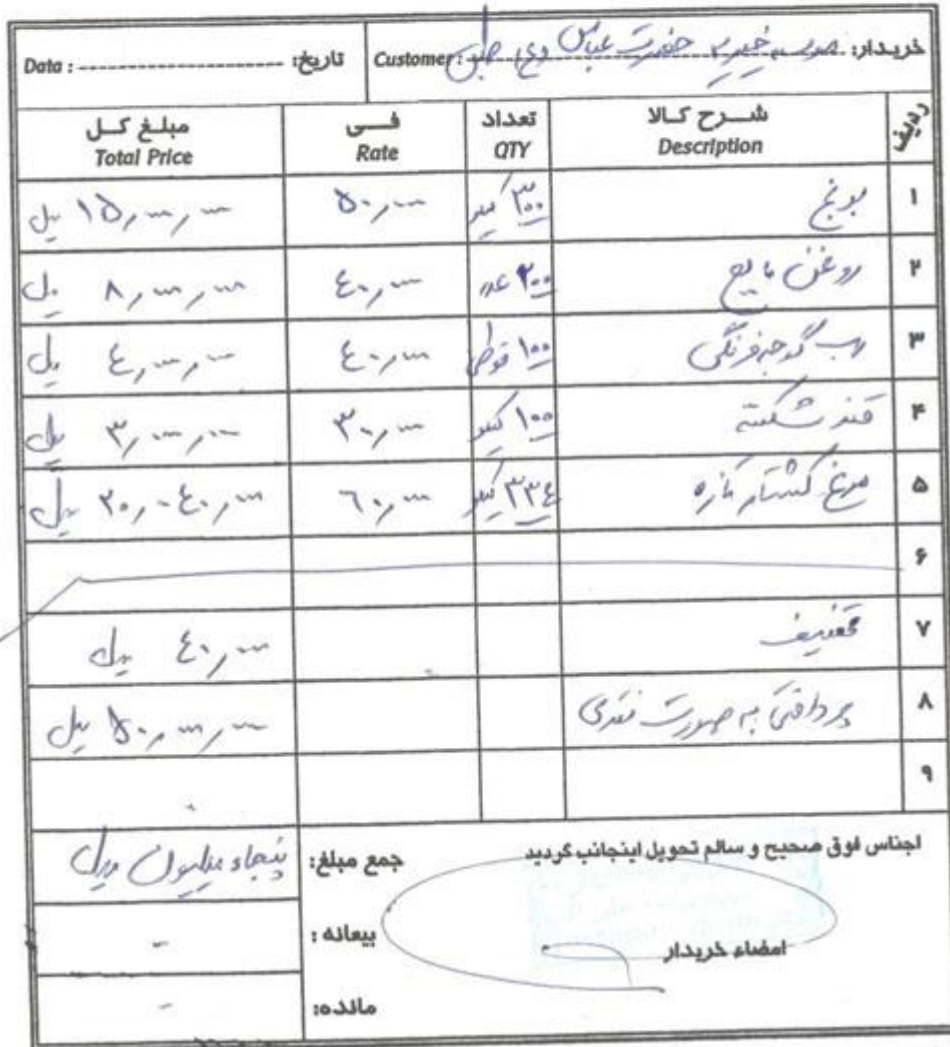 خریدار: Customer: موسسه خیریه حضرت عباس (ع) تاریخ: Data:
ردیف شرح کالا Description تعداد QTY فی Rate مبلغ کل Total Price
۱ برنج ۳۰۰ کیلو ۵۰٫۰۰۰ ۱۵٫۰۰۰٫۰۰۰ ریال
۲ روغن مایع ۲۰۰ عدد ۴۰٫۰۰۰ ۸٫۰۰۰٫۰۰۰ ریال
۳ رب گوجه فرنگی ۱۰۰ قوطی ۴۰٫۰۰۰ ۴٫۰۰۰٫۰۰۰ ریال
۴ قند شکسته ۱۰۰ کیلو ۳۰٫۰۰۰ ۳٫۰۰۰٫۰۰۰ ریال
۵ مرغ کشتار تازه ۳۳۴ کیلو ۶۰٫۰۰۰ ۲۰٫۰۴۰٫۰۰۰ ریال
۶
۷ تخفیف ۴۰٫۰۰۰ ریال
۸ پرداختی به صورت نقدی ۵۰٫۰۰۰٫۰۰۰ ریال
۹
اجناس فوق صحیح و سالم تحویل اینجانب گردید جمع مبلغ: پنجاه میلیون ریال
امضاء خریدار بیعانه: -
مانده: -